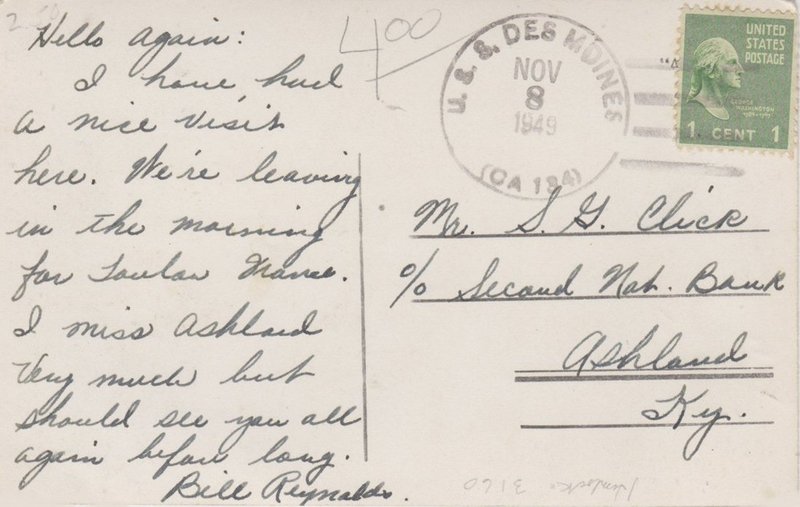 Hello again:
I have had
a nice visit
here. We're leaving
in the morning
for Toulon France.
I miss Ashland
Very much but
should see you all
again before long.
Bill Reynolds.
400
U.S.S. DES MOINES
NOV
8
1949
(CA 134)
UNITED
STATES
POSTAGE
GEORGE
WASHINGTON
1789-1797
1 CENT 1
Mr. S. G. Click
% Second Nat. Bank
Ashland
Ky.
3160